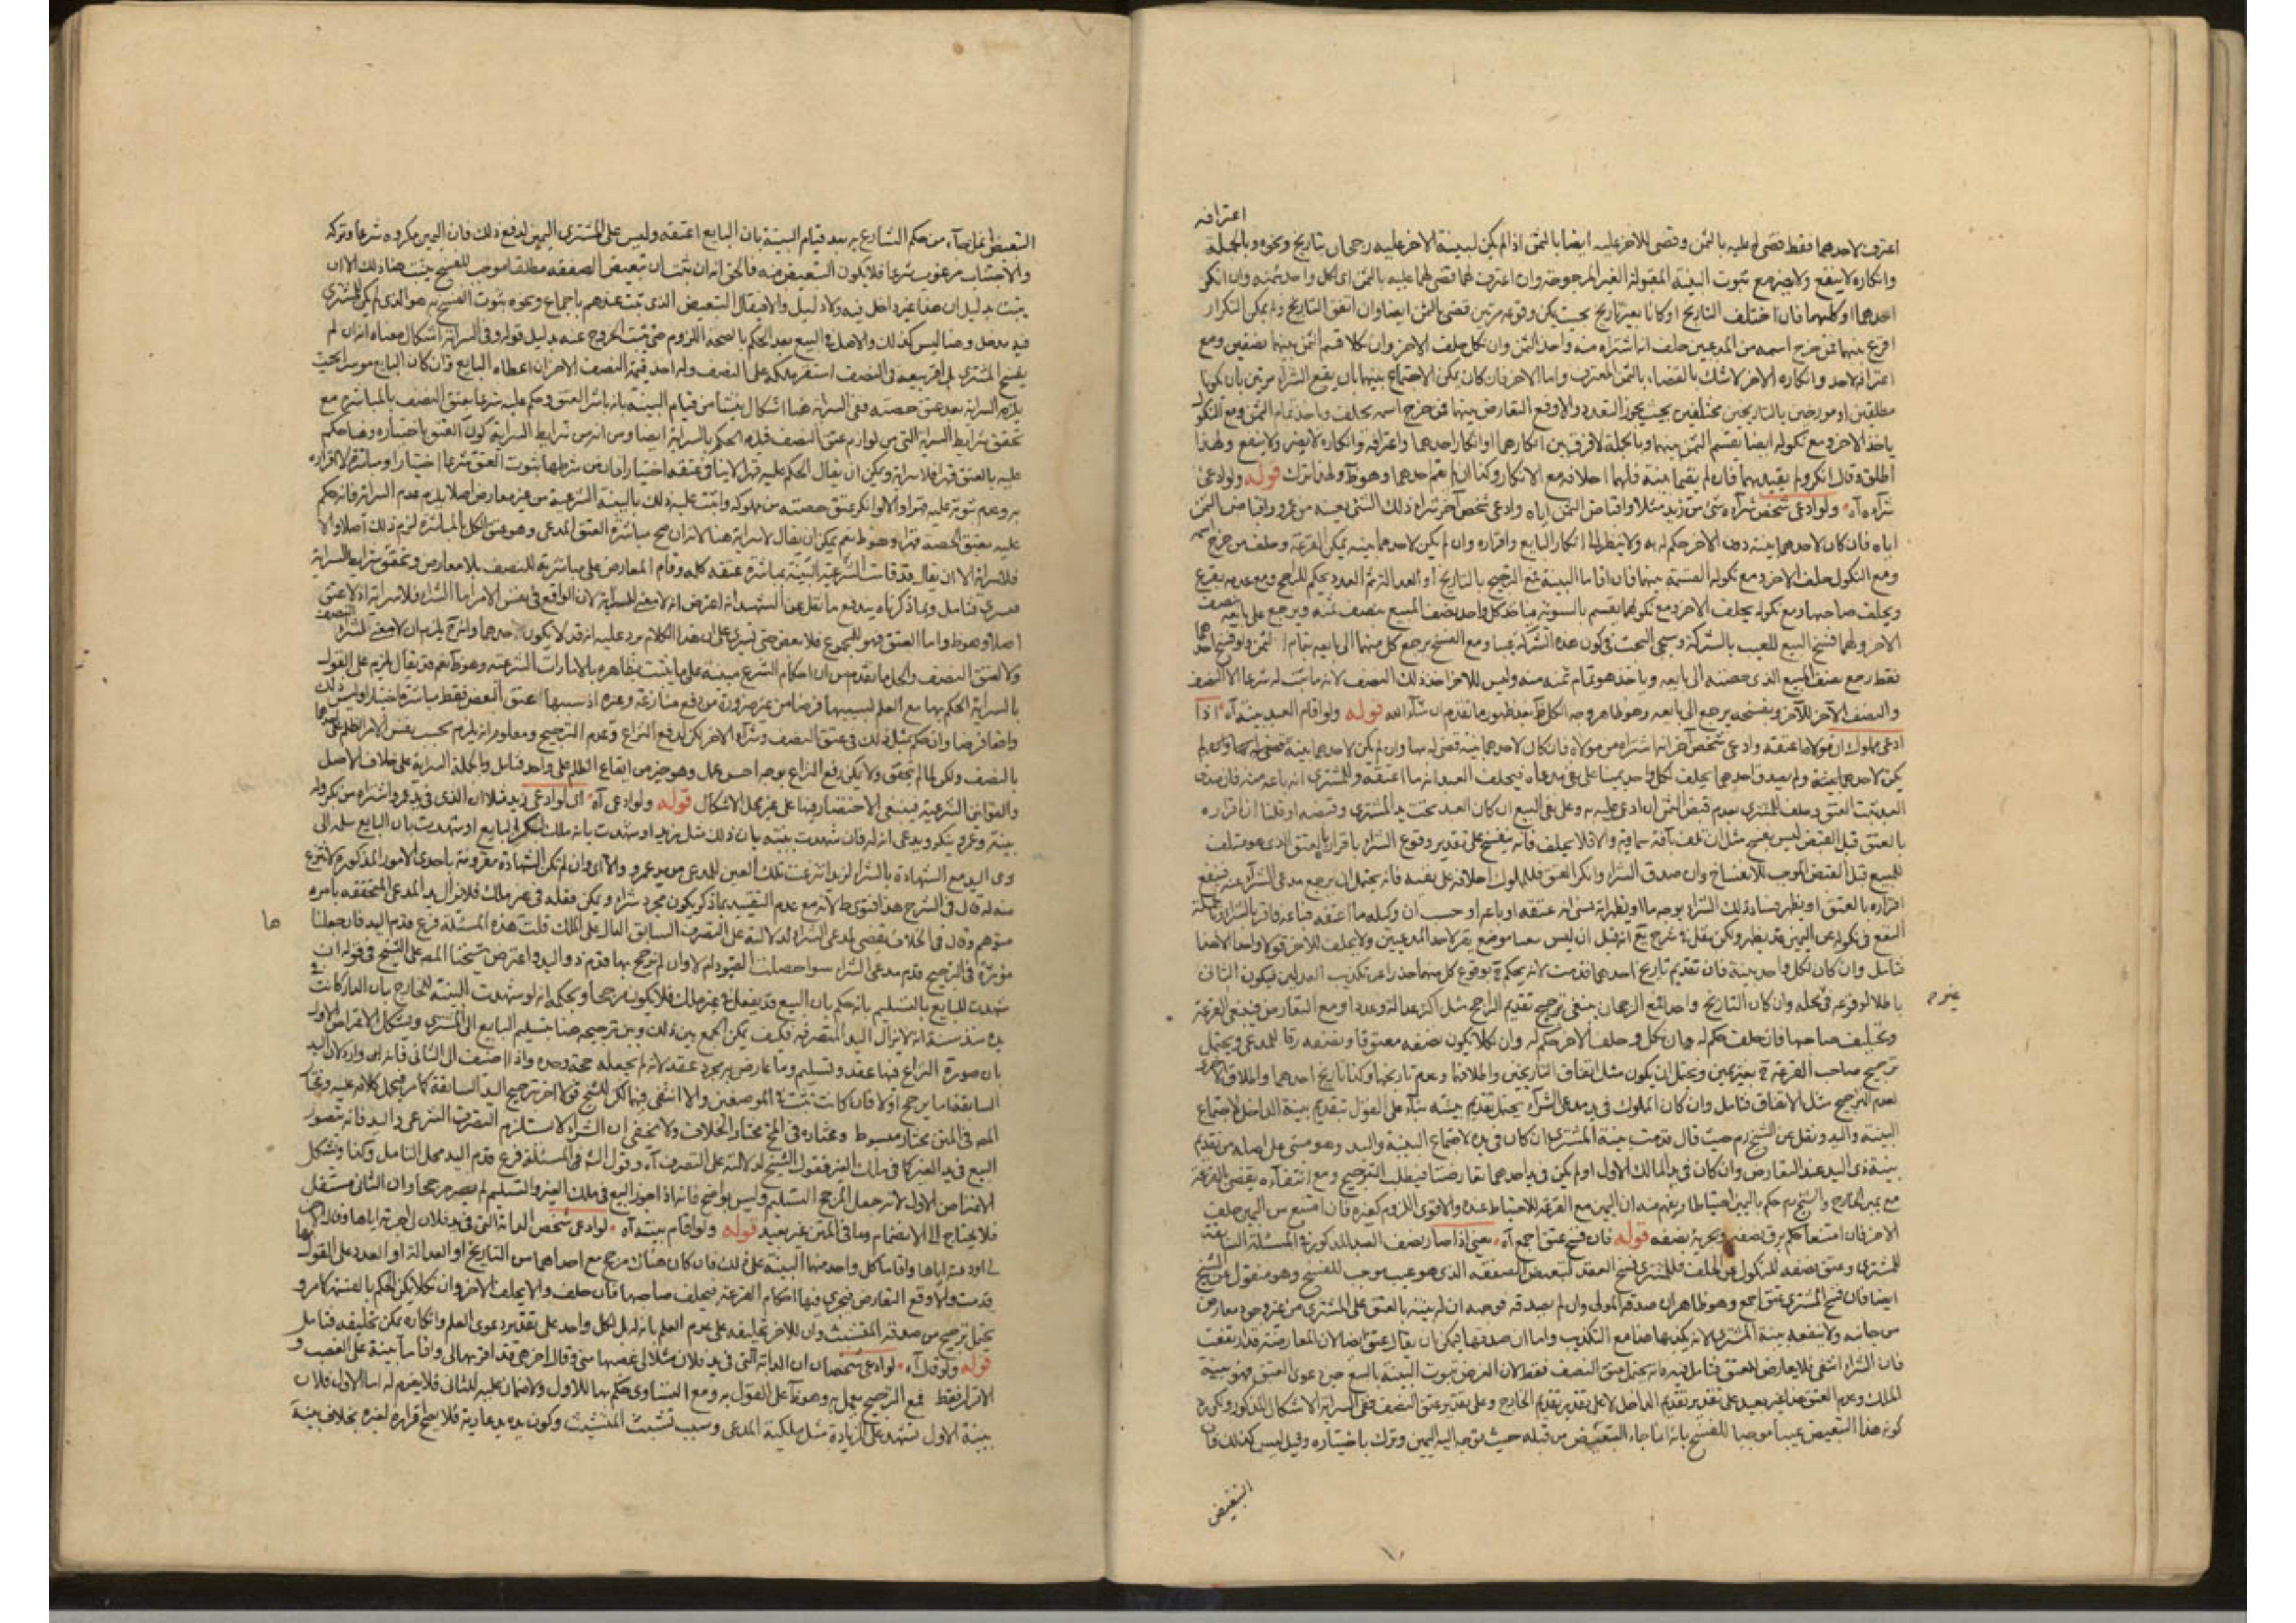 اعترافه
اعترف لاحدهما فقط قضى له عليه بالثمن وقضى للاخر عليه ايضا بالثمن اذا لم يكن لبينة الاخر عليه رجحان بتاريخ ونحوه وبالجملة
وانكاره لا ينفع ولا يضر مع ثبوت البينة المقبولة الغير المرجوحة وان اعترف لهما قضى لهما عليه بالثمن اى لكل واحد ثمنه وان انكر
احدهما او كليهما فان اختلف التاريخ او كانا بغير تاريخ بحيث يمكن وقوعه مرتين قضى بالثمن ايضا وان اتفق التاريخ ولم يمكن التكرار
اقرع بينهما فمن خرج اسمه من المدعيين حلف انه اشتراه منه واخذ الثمن وان نكل حلف الاخر وان نكلا قسم الثمن بينهما نصفين ومع
اعترافه لاحد وانكاره الاخر لا شك بالقضاء بالثمن للمعترف واما الاخر فان كان يمكن الاجتماع بينهما بان يقع الشراء مرتين بان يكونا
مطلقين او مورخين بالتاريخين مختلفين بحيث يجوز التعدد والا وقع التعارض بينهما فمن خرج اسمه يحلف وياخذ تمام الثمن ومع النكول
ياخذ الاخر ومع نكوله ايضا يقسم الثمن بينهما وبالجملة لا فرق بين انكارهما او انكار احدهما واعترافه وانكاره لا يضر ولا ينفع ولهذا
اطلق وقال انكر ولم يقيد بهما فان لم يقيما بينة فلهما احلافه مع الانكار وكذا ان لم يقم احدهما وهو ظ ولهذا ترك قوله ولو ادعى
شرآه آه ولو ادعى شخص شرآء شئ من زيد مثلا واقباض الثمن اياه وادعى شخص آخر شراء ذلك الشئ بعينه من عمرو واقباض الثمن
اياه فان كان لاحدهما بينة دون الاخر حكم له به ولا ينظر الى انكار البايع واقراره وان لم يكن لاحدهما بينه يمكن القرعة وحلف من خرج اسمه
ومع النكول حلف الاخر ومع نكوله القسمة بينهما فان اقاما البينة فمع الترجيح بالتاريخ او العدالة ثم العدد يحكم للراجح ومع عدمه يقرع
ويحلف صاحبها ومع نكوله يحلف الاخر ومع نكولهما يقسم بالسوية فياخذ كل واحد نصف المبيع بنصف ثمنه ويرجع على بايعه بنصف
الاخر ولهما فسخ البيع للعيب بالشركة وسيجئ البحث فى كون هذه الشركة عيبا ومع الفسخ يرجع كل منهما الى بايعه بتمام الثمن ولو فسخ احدهما
فقط رجع بنصف المبيع الذى حصته الى بايعه وياخذ هو تمام ثمنه منه وليس للاخر اخذ ذلك النصف لانه ما ثبت له شرعا الا النصف
والنصف الآخر للآخر وبفسخه يرجع الى بايعه وهو ظاهر وجه الكل ظ بعد ظهور ما تقدم ان شآء الله قوله ولو اقام العبد بينة آه اذا
ادعى مملوك ان مولاه اعتقه وادعى شخص آخر انه اشتراه من مولاه فان كان لاحدهما بينة قضى له بها وان لم
يكن لاحدهما بينة ولم يصدق احدهما يحلف لكل واحد يمينا على نفى مدعاه فيحلف العبد انه ما اعتقه وللمشترى انه ما باعه منه فان صدق
العبد ثبت العتق وحلف للمشترى بعدم قبض الثمن ان ادعى عليه به وعلى نفى البيع ان كان العبد تحت يد المشترى وقبضه او قلنا ان اقراره
بالعتق قبل القبض ليس بفسخ مثل ان تلف بآفة سماوية والا فلا يحلف فانه ينفسخ على تقدير وقوع الشراء باقراره بالعتق الذى هو متلف
للمبيع قبل القبض الموجب للانفساخ وان صدق الشراء وانكر العتق فللمملوك احلافه على نفيه فانه يحتمل ان يرجع مدعى الشرآء عنه فينفع
اقراره بالعتق او يظهر فساد ذلك الشراء بوجه ما او يظهر انه نسى انه عتقه او باعه او حسب ان وكيله ما اعتقه فباعه فاقر بالشراء وبالجملة
النفع فى نكوله عن اليمين قد يظهر ولكن نقل فى شرح يع انه قيل ان ليس معنا موضع يقر لاحد المدعيين ولا يحلف للاخر قولا واحدا الا هذا
فتامل وان كان لكل واحد بينة فان تقدم تاريخ احدهما قدمت لانه يحكم ح بوقوع كل منهما حذرا عن تكذيب العدلين فيكون الثانى
باطلا لوقوعه فى غير محله وان كان التاريخ واحدا فمع الرجحان ينبغى ترجيح تقديم الراجح مثل اكثر عدالة وعددا ومع التعارض فينبغى القرعة
وتحليف صاحبها فان حلف حكم له وان نكل وحلف الآخر حكم له وان نكلا يكون نصفه معتوقا ونصفه رقا للمدعى ويحتمل
ترجيح صاحب القرعة ح بغير يمين ويحتمل ان يكون مثل اتفاق التاريخين واطلاقهما وعدم تاريخهما وكذا تاريخ احدهما واطلاق الاخرى
لعدم الترجيح مثل الاتفاق فتامل وان كان المملوك فى يد مدعى الشرآء يحتمل تقديم بينته بنآء على القول بتقديم بينة الداخل لاجتماع
البينة واليد ونقل عن الشيخ ره حيث قال قدمت بينة المشترى ان كان فى يده لاجتماع البينة واليد وهو مبنى على اصله من تقديم
بينة ذى اليد عند التعارض وان كان فى يد المالك الاول او لم يكن فى يد احدهما تعارضتا فيطلب الترجيح ومع انتفآءه يقضى بالقرعة
مع يمين الخارج والشيخ ره حكم باليمين احتياطا ويفهم منه ان اليمين مع القرعة للاحتياط عنده والاقوى اللزوم كغيره فان امتنع من اليمين حلف
الاخر فان امتنعا حكم برق نصفه وبحرية نصفه قوله فان فسخ عتق اجمع آه يعنى اذا صار نصف العبد المذكور فى المسئلة السابقة
للمشترى وعتق نصفه للنكول عن الحلف فللمشترى فسخ العقد لتبعض الصفقه الذى هو عيب موجب للفسخ وهو منقول عن الشيخ
ايضا فان فسخ المشترى عتق اجمع وهو ظاهر ان صدقه المولى وان لم يصدقه فوجهه ان لم بينته بالعتق على المشترى من غير وجود معارض
من جانبه ولا ينفعه بينة المشترى لانه يكذبها هنا مع التكذيب واما ان صدقها فيمكن ان يقال عتق ايضا لان المعارضة قد ارتفعت
فان الشراء انتفى فلا يعارض العتق فتامل فيه فانه يحتمل عتق النصف فقط لان الفرض ثبوت البينة بالبيع حين دعوى العتق فهو بينة
الملك وعدم العتق هنا غير بعيد على تقدير تقديم الداخل لا على تقدير تقديم الخارج وعلى تقدير عتق النصف ففى السراية الاشكال المذكور ولكن
كونه هذا التبعيض عيبا موجبا للفسخ بانه انما جاء التبعيض من قبله حيث توجه اليه اليمين وترك باختياره وقيل ليس كذلك فان
التبعيض
التبعيض انما جآء من حكم الشارع به بعد قيام البينة بان البايع اعتقه وليس على المشترى اليمين لدفع ذلك فان اليمين مكروه شرعا وتركه
والاجتناب مرغوب شرعا فلا يكون التبعيض منه فالحق انه ان ثبت ان تبعيض الصفقه مطلقا موجب للفسخ يثبت هنا ذلك الا ان
يثبت بدليل ان هذا غير داخل فيه ولا دليل والا فيقال التبعيض الذى ثبت عندهم باجماع ونحوه ثبوت الفسخ به هو الذى لم يكن للمشترى
فيه مدخل وهنا ليس كذلك والاصل فى البيع بعد الحكم بالصحة اللزوم حتى يثبت الخروج عنه بدليل قوله وفى السراية اشكال معناه انه ان لم
يفسخ المشترى بل اقر ببيعه فى النصف استقر ملكه على النصف وله اخذ قيمة النصف الاخر ان اعطاه البايع وان كان البايع موسرا بحيث
يلزمه السراية بعد عتق حصته ففى السراية هنا اشكال ينشا من قيام البينة بانه باشر العتق وحكم عليه شرعا بعتق النصف بالمباشرة مع
تحقق شرايط السراية التى من لوازم عتق النصف فيلزم الحكم بالسراية ايضا ومن انه من شرايط السراية كون العتق باختياره وهنا حكم
عليه بالعتق قهرا فلا سراية ويمكن ان يقال الحكم عليه قهرا لا ينافى عتقه اختيارا فان من شرطها ثبوت العتق شرعا اختيارا ومباشرة لا اقراره
به وعدم ثبوته عليه قهرا والا لو انكر عتق حصته من مملوكه واثبت عليه ذلك بالبينة الشرعية من غير معارض اصلا يلزم عدم السراية فانه حكم
عليه بعتق الحصة قهرا وهو ظ نعم يمكن ان يقال لا سراية هنا لانه ان صح مباشرة العتق المدعى وهو عتق الكل بالمباشرة لزم ذلك اصلا والا
فلا سراية الا ان يقال قد قامت الشرعية البينة بمباشرة عتقه كله وقام المعارض على مباشرته للنصف بلا معارض وتحقق شرايط السراية
فسرى فتامل وبما ذكرناه يندفع ما نقل عن الشهيد انه اعترض انه لا معنى للسراية لان الواقع فى نفس الامر اما الشراء فلا سراية اذ لا عتق
اصلا وهو ظ واما العتق فهو للمجموع فلا بعض حتى يسرى على ان هذا الكلام يرد عليه انه قد لا يكون احدهما وانه ح يلزم ان لا معنى لشراء النصف
ولا لعتق النصف والحل ما تقدم من ان احكام الشرع مبنية على ما يثبت بظاهره بالامارات الشرعيه وهو ظ نعم قد يقال يلزم على القول
بالسراية الحكم بها مع العلم لسببيها فرضا من غير ضرورة من دفع منازعة وغيره اذ سببها عتق البعض فقط مباشرة اختيارا وليس ذلك
واقعا فرضا وان حكم بمثل ذلك فى عتق النصف وشرآء الاخر لكن لدفع النزاع وعدم الترجيح ومعلوم انه يلزم بحسب نفس الامر الظلم على احدهما
بالنصف ولكن لما لم يتحقق ولا يمكن دفع النزاع بوجه احسن عمل وهو خير من ايقاع الظلم على واحد فتامل وبالجملة السراية على خلاف الاصل
والقوانين الشرعيه فينبغى الاختصار فيها على غير محل الاشكال قوله ولو ادعى آه اى لو ادعى زيد فلا ان الذى فى يد عمرو اشتراه من بكر وله
بينة وعمرو ينكر ويدعى انه له فان شهدت بينته بان ذلك ملك زيد او شهدت بانه ملك لبكر البايع او شهدت بان البايع سلمه الى
ذى اليد مع الشهادة بالشراء لزيد انتزعت تلك العين للمدعى من يد عمرو والا اى وان لم تكن الشهادة مقرونة باحدى الامور المذكورة لا تنزع
منه له قال فى الشرح هذا فتوى ط لانه مع عدم التقييد بما ذكر يكون مجرد شراء ويمكن فعله فى غير ملك فلا تزال اليد المدعى المتحققه بامره
متوهم وقال فى الخلاف يقضى لمدعى الشراء لدلالته على التصرف السابق الدال على الملك قلت هذه المسئلة فرع قدم اليد فان جعلنا
ها
مؤثرة فى الترجيح قدم مدعى الشراء سوا حصلت القيود ام لا وان لم نرجح بها قدم ذو اليد واعترض شيخنا المصه على الشيخ فى قوله ان
شهدت للبايع بالتسليم بانه حكم بان البيع قد يفعل فى غير ملك فلا يكون مرجحا ويحكم انه لو شهدت البينة للخارج بان الدار كانت فى
يده منذ سنة انه لا يزال اليد المتصرفه فكيف يمكن الجمع بين ذلك وبين ترجيحه هنا بتسليم البايع الى المشترى ويشكل الاعتراض الاول
بان صورة النزاع فيها عقد وتسليم وما عارض به مجرد عقد لانه لم يجعله حجة وحده واذا اضيف الى الثانى فانه
السابقة اما يرجح اولا فان كانت تثبت فى الموضعين والا انتفى فيهما لكن للشيخ قولا اخر بترجيح اليد السابقة كما مر فيحمل كلامه عليه ومختار
المصه فى المتن مختار مبسوط ومختاره فى المخ مختار الخلاف ولا يخفى ان الشراء لا يستلزم التصرف الشرعى واليد فانه يتصور
البيع فى يد الغير كما فى ملك الغير فقول الشيخ لدلالته على التصرف آه وقول الشه والمسئلة فرع قدم اليد محل التامل وكذا ويشكل
الاعتراض الاول لانه جعل المرجح التسليم وليس بواضح فانه اذا جوز البيع فى ملك الغير والتسليم لم يصر مرجحا وان الثانى مستقل
فلا يحتاج الى الانضمام وما فى المتن غير بعيد قوله ولو اقام بينته آه لو ادعى شخص الدابة التى فى يد فلان لى اجرته اياها وقال الاخر
لى اودعته اياها واقاما كل واحد منهما البينة على ذلك فان كان هناك مرجح مع احداهما من التاريخ او العدالة او العدد على القول بها
قدمت والا وقع التعارض فيجرى فيها احكام القرعة فيحلف صاحبها فان حلف والا يحلف الاخر وان نكلا يمكن الحكم بالقسمة كما مر و
يحتمل ترجيح من صدقه المتشبث وان للاخر تحليفه على عدم العلم بانه له بل لكل واحد على تقدير دعوى العلم وانكاره يمكن تحليفه فتامل
قوله ولو قال آه لو ادعى شخصان ان الدابة التى فى يد فلان مثلا لى غصبها منى وقال اخر هى قد اقر بها لى واقاما بينة على الغصب و
الاقرار فقط فمع الترجيح يعمل به وهو ظ على القول به ومع التساوى حكم بها للاول ولا ضمان عليه للثانى فلا يغرم له اما الاول فلان
بينة الاول تشهد على الزيادة مثل ملكية المدعى وسبب تشبث المتشبث وكون يده يد عادية فلا يصح اقراره لغيره بخلاف بينة